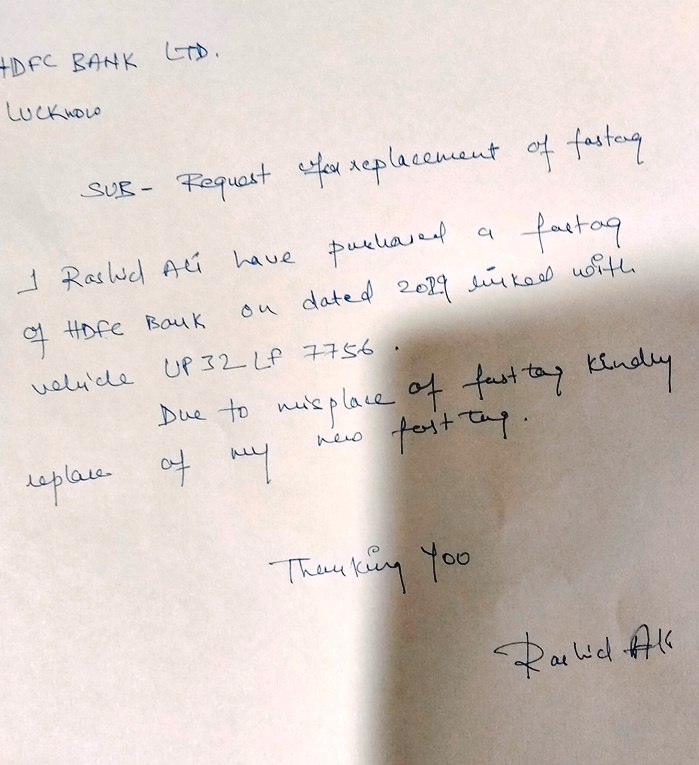 HDFC BANK LTD.
LUCKNOW
SUB- Request for replacement of fastag
I Rashid Ali have puchased a fastag
of HDFC Bank on dated 2019 linked with
vehicle UP32LF 7756.
Due to misplace of fasttag kindly
replace of my new fasttag.
Thanking You
Rashid Ali